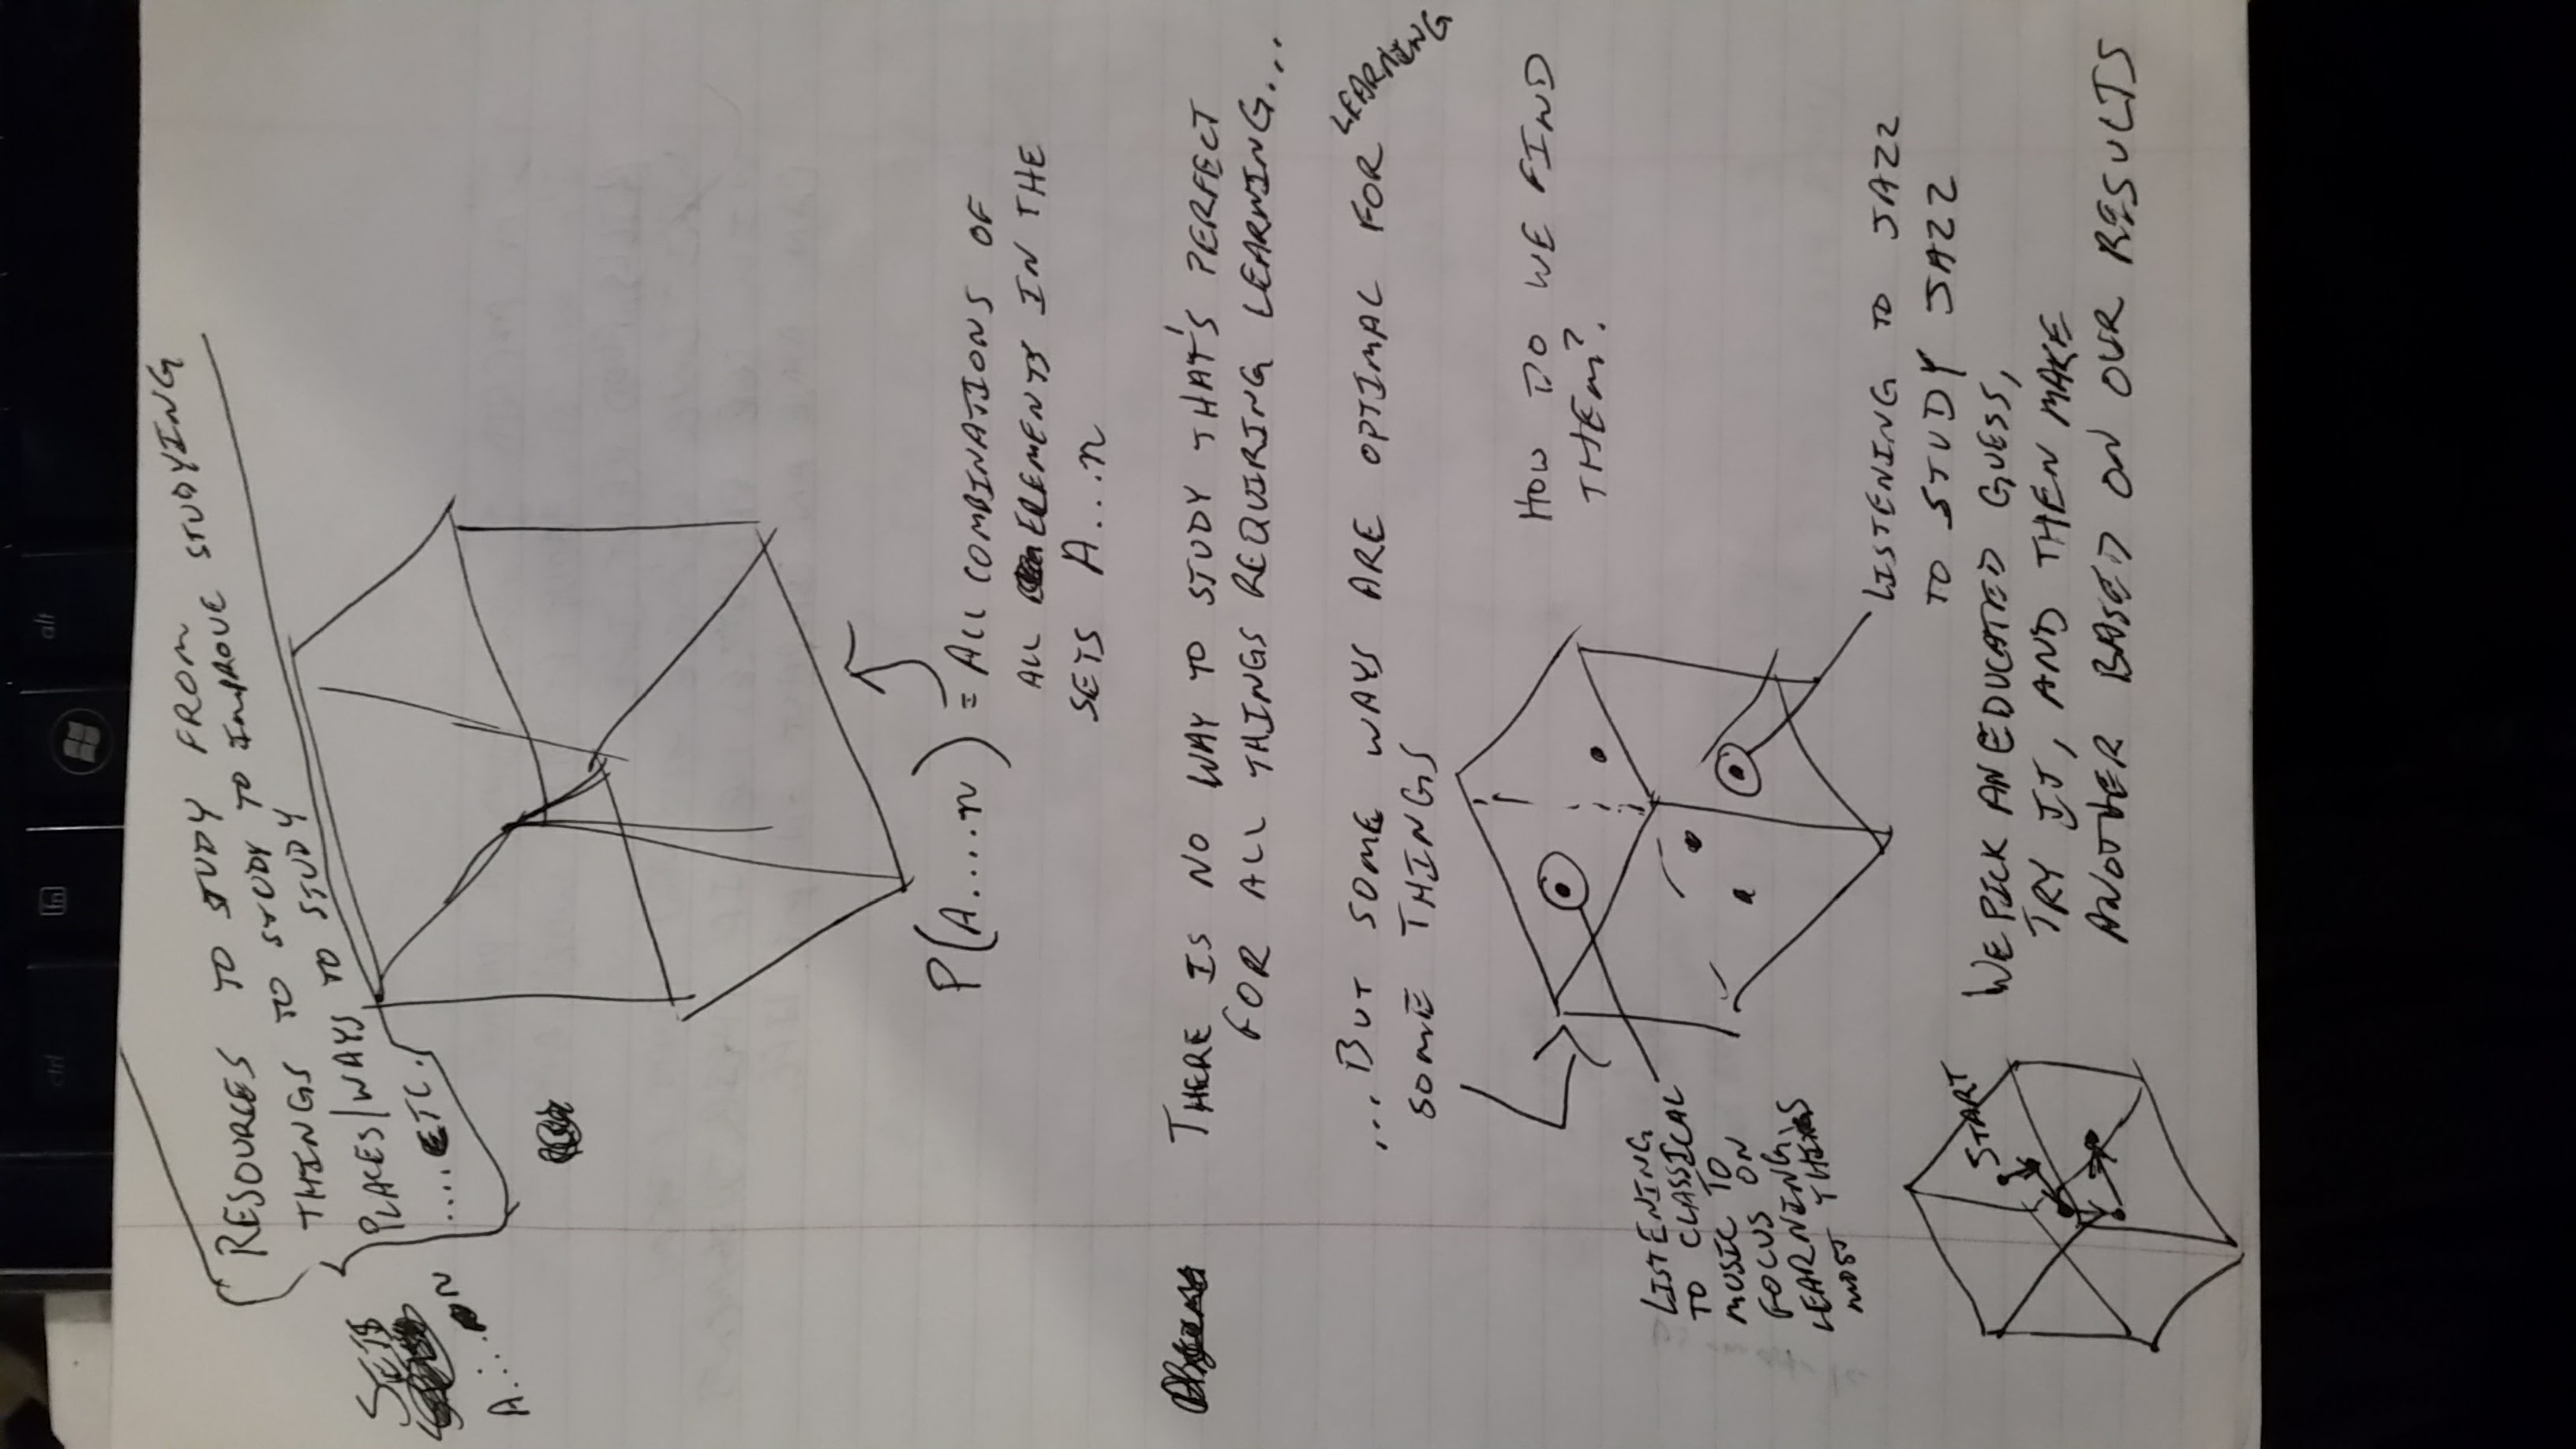 ctrl
fn
alt
RESOURCES TO STUDY FROM
THINGS TO STUDY TO IMPROVE STUDYING
PLACES/WAYS TO STUDY
.... ETC.
SETS
A....N
P(A....n) = ALL COMBINATIONS OF
ALL ELEMENTS IN THE
SETS A...n
THERE IS NO WAY TO STUDY THAT'S PERFECT
FOR ALL THINGS REQUIRING LEARNING...
...BUT SOME WAYS ARE OPTIMAL FOR LEARNING
SOME THINGS
HOW DO WE FIND
THEM?
LISTENING
TO CLASSICAL
MUSIC TO
FOCUS ON
LEARNING
MOST THINGS
LISTENING TO JAZZ
TO STUDY JAZZ
START
WE PICK AN EDUCATED GUESS,
TRY IT, AND THEN MAKE
ANOTHER BASED ON OUR RESULTS